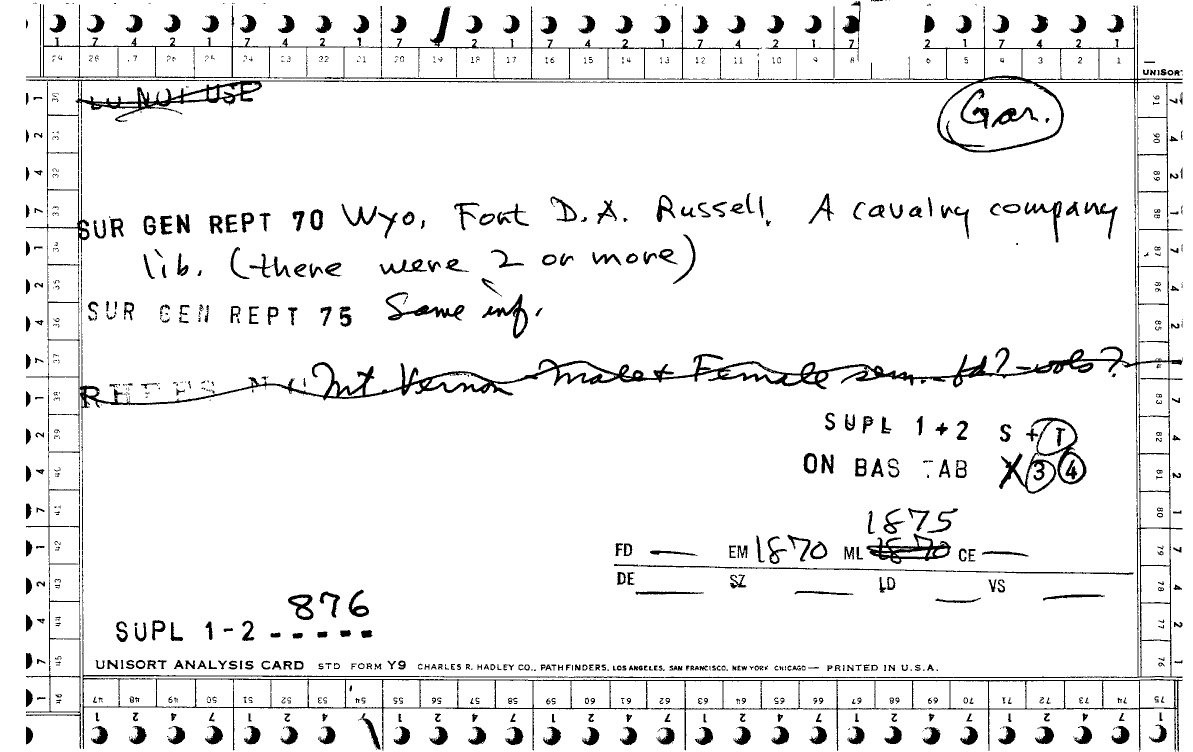 7 4 2 1 7 4 2 1 7 4 2 1 7 4 2 1 7 4 2 1 7 2 1 7 4 2 1
29 28 27 26 25 24 23 22 21 20 19 18 17 16 15 14 13 12 11 10 9 8 6 5 4 3 2 1
UNISORT
DO NOT USE
Gar.
SUR GEN REPT 70 Wyo, Fort D.A. Russell. A cavalry company
lib. (there were 2 or more)
SUR GEN REPT 75 Same inf.
RHEES Mt. Vernon Male + Female sem. - fd? - vols?
SUPL 1+2 S + T
ON BAS TAB X 3 4
1875
FD — EM 1870 ML 1870 CE —
DE SZ LD VS
876
SUPL 1-2 -----
UNISORT ANALYSIS CARD STD FORM Y9 CHARLES R. HADLEY CO., PATHFINDERS, LOS ANGELES, SAN FRANCISCO, NEW YORK CHICAGO — PRINTED IN U.S.A.
47 48 49 50 51 52 53 54 55 56 57 58 59 60 61 62 63 64 65 66 67 68 69 70 71 72 73 74 75
1 2 4 7 1 2 4 1 2 4 7 1 2 4 7 1 2 4 7 1 2 4 7 1 2 4 7 1